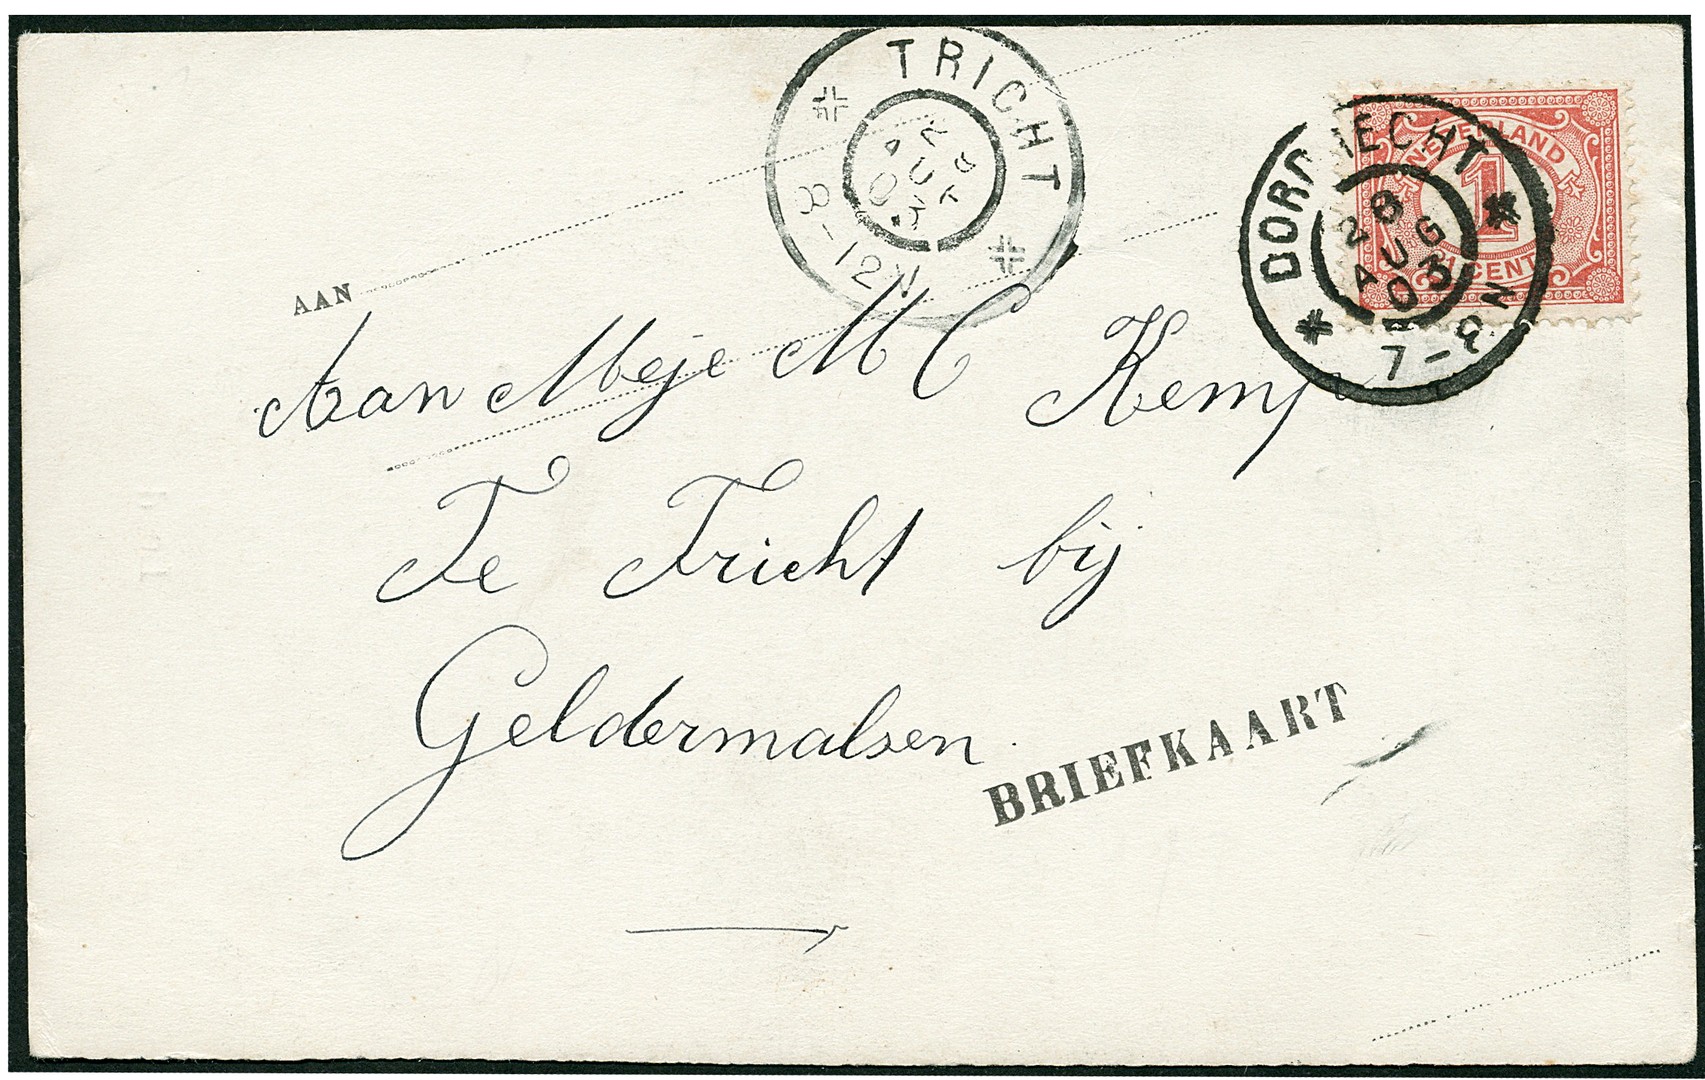 TRICHT
8-12N
DORDRECHT
28
AUG
03
7-8N
NEDERLAND
1
CENT
AAN
Aan Meje M C Kemp
Te Tricht bij
Geldermalsen
BRIEFKAART